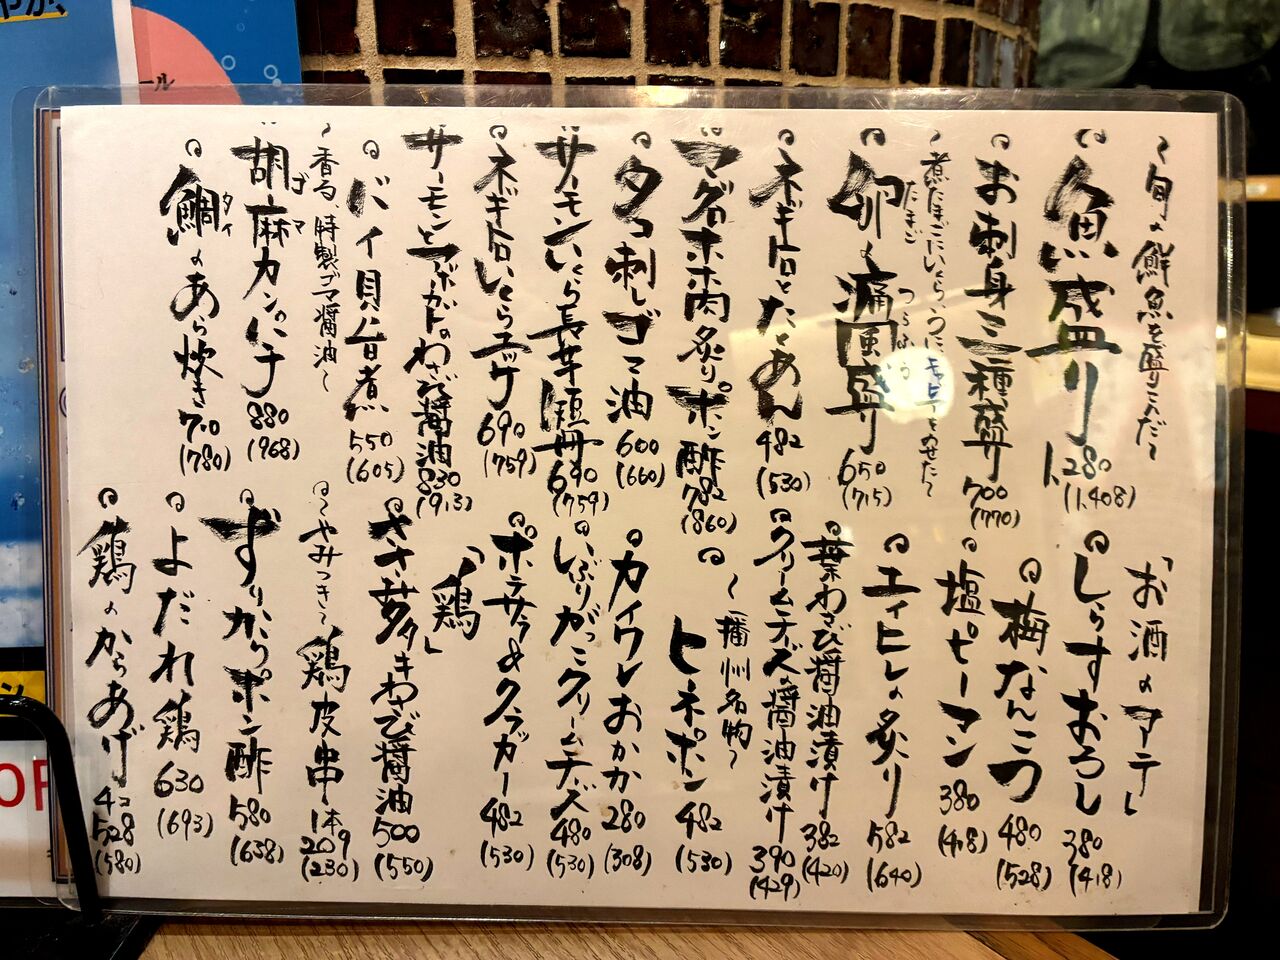 〜旬の鮮魚を盛りこんだ〜
魚盛り 1,280 (1,408)
お刺身三種盛り 700 (770)
〜煮たまごにいくら、うに、キャビアをのせた〜
卵の痛風盛り 650 (715)
たまご つうふう
ネギトロとたくあん 482 (530)
マグロホホ肉炙りポン酢 782 (860)
タコ刺しゴマ油 600 (660)
サーモンいくら長芋短冊 690 (759)
ネギトロいくらユッケ 690 (759)
サーモンとアボカドのわさび醤油 830 (913)
バイ貝旨煮 550 (605)
〜香る、特製ゴマ醤油〜
胡麻カンパチ 880 (968)
ゴマ
鯛のあら炊き 710 (780)
タイ
「お酒のアテ」
しらすおろし 380 (418)
梅なんこつ 480 (528)
塩ピーマン 380 (418)
エイヒレの炙り 582 (640)
葉わさび醤油漬け 382 (420)
クリームチーズの醤油漬け 390 (429)
〜播州名物〜
ヒネポン 482 (530)
カイワレおかか 280 (308)
いぶりがっこクリームチーズ 480 (530)
ポテサラ&クラッカー 482 (530)
「鶏」
ささ身タタキわさび醤油 500 (550)
〜やみつき〜
鶏皮串 1本 209 (230)
ずりからポン酢 580 (638)
よだれ鶏 630 (693)
鶏のからあげ 4コ 528 (580)
ール